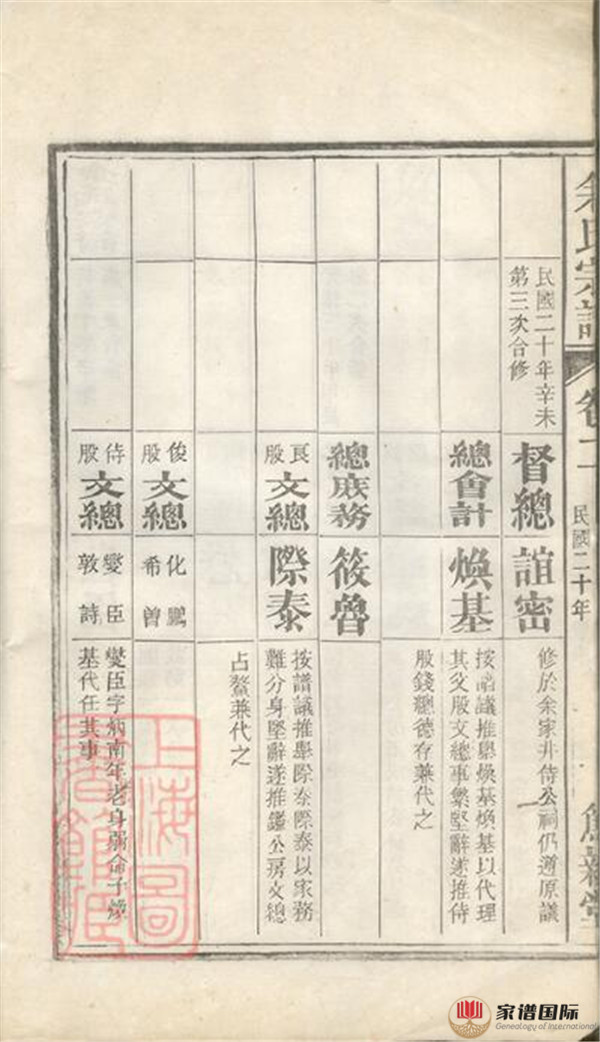 余氏宗譜
卷一
民國二十年
民國二十年辛未
第三次合修
督總
誼密
修於余家井侍公祠仍遵原議
總會計
煥基
按譜議推舉煥基煥基以代理
其父股文總事繁堅辭遂推侍
股錢總德存兼代之
總庶務
筱魯
良股
文總
際泰
按譜議推舉際泰際泰以家務
難分身堅辭遂推鑑公房文總
占鰲兼代之
俊股
文總
化鵬
希曾
侍股
文總
燮臣
敦詩
燮臣字炳南年老身弱命子煥
基代任其事
上海圖
書館藏
家谱国际
Genealogy of International